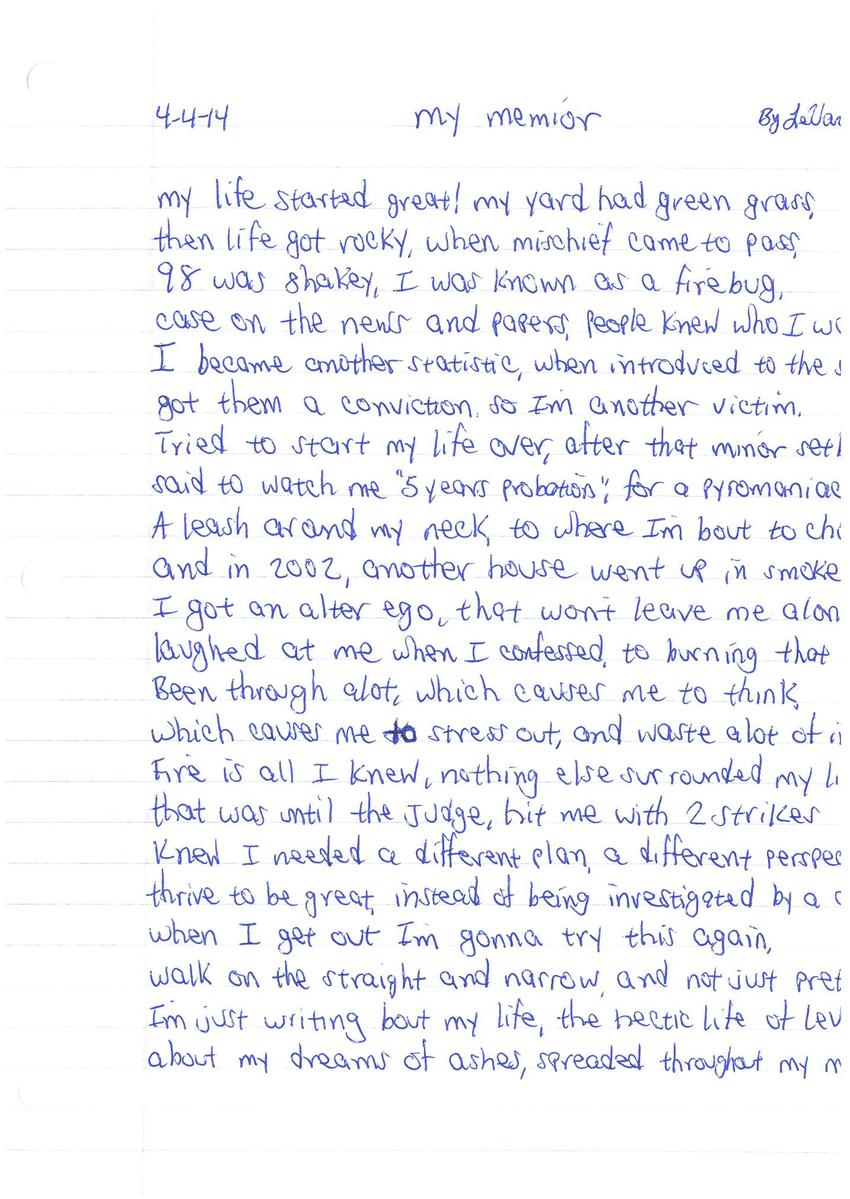 4-4-14 my memior By LeVar
my life started great! my yard had green grass,
then life got rocky, when mischief came to pass,
98 was shakey, I was known as a firebug,
case on the news and papers, people knew who I
I became another statistic, when introduced to the
got them a conviction, so I'm another victim.
Tried to start my life over, after that minor
said to watch me "5 years probation", for a pyromaniac
A leash around my neck, to where I'm bout to
and in 2002, another house went up in smoke
I got an alter ego, that won't leave me alon
laughed at me when I confessed, to burning that
Been through alot, which causes me to think,
which causes me to stress out, and waste alot of
Fire is all I knew, nothing else surrounded my
that was until the Judge, hit me with 2 strikes
Knew I needed a different plan, a different perspec
thrive to be great, instead of being investigated by a
when I get out I'm gonna try this again,
walk on the straight and narrow, and not just pret
I'm just writing bout my life, the hectic life of Lev
about my dreams of ashes, spreaded throughout my